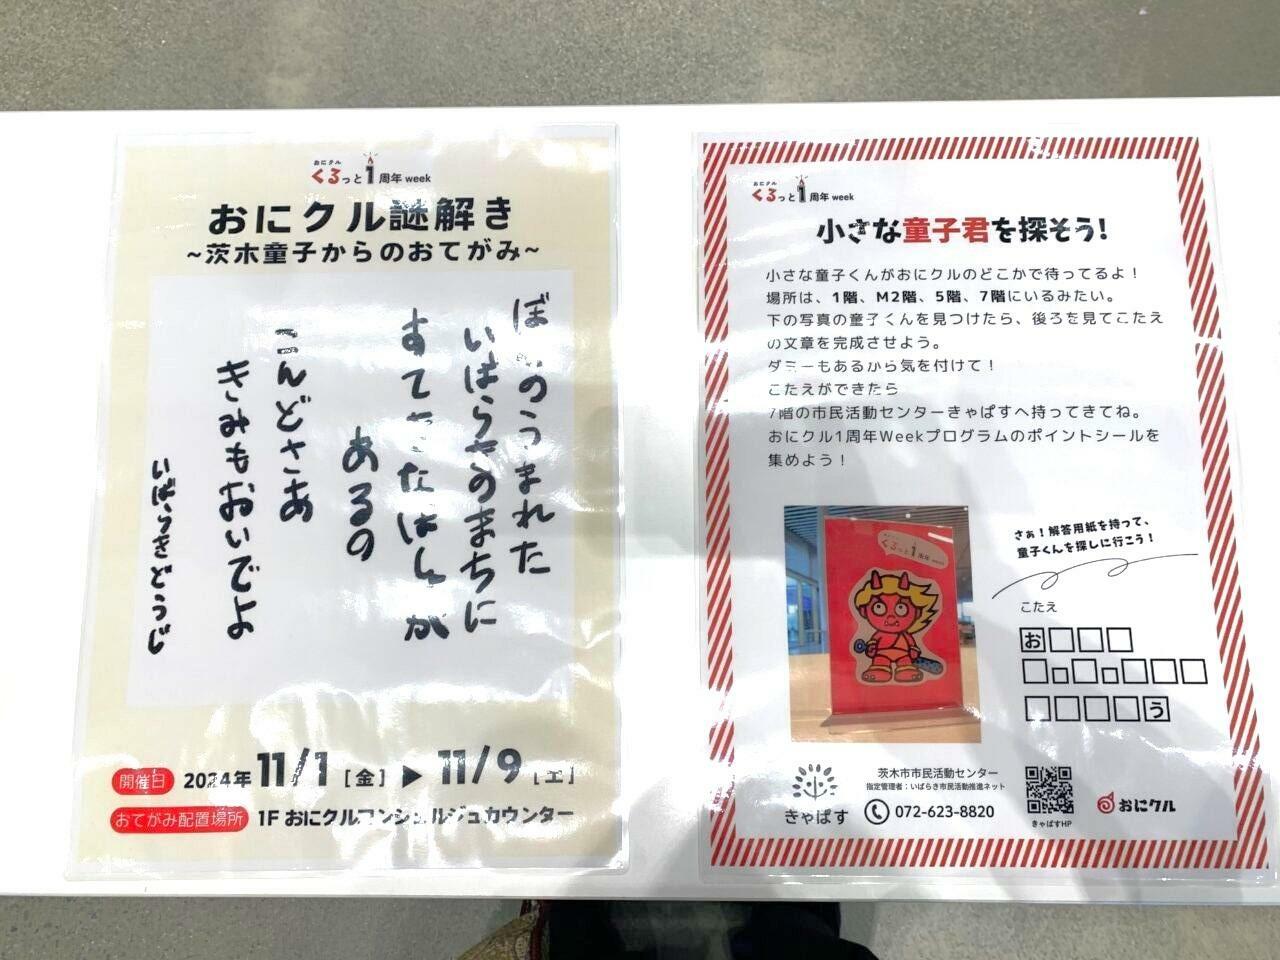 おにクル
くるっと1周年 week
おにクル謎解き
~茨木童子からのおてがみ~
ぼくのうまれた
いばらきのまちに
すてきなはしが
あるの
こんどさあ
きみもおいでよ
いばらきどうじ
開催日 2024年 11/1 [金] ▶ 11/9 [土]
おてがみ配置場所 1F おにクルコンシェルジュカウンター
おにクル
くるっと1周年 week
小さな童子君を探そう!
小さな童子くんがおにクルのどこかで待ってるよ!
場所は、1階、M2階、5階、7階にいるみたい。
下の写真の童子くんを見つけたら、後ろを見てこたえ
の文章を完成させよう。
ダミーもあるから気を付けて!
こたえができたら
7階の市民活動センターきゃぱすへ持ってきてね。
おにクル1周年Weekプログラムのポイントシールを
集めよう!
くるっと1周年 week
さぁ!解答用紙を持って、
童子くんを探しに行こう!
こたえ
お
う
きゃぱす
茨木市市民活動センター
指定管理者:いばらき市民活動推進ネット
072-623-8820
きゃぱすHP
おにクル